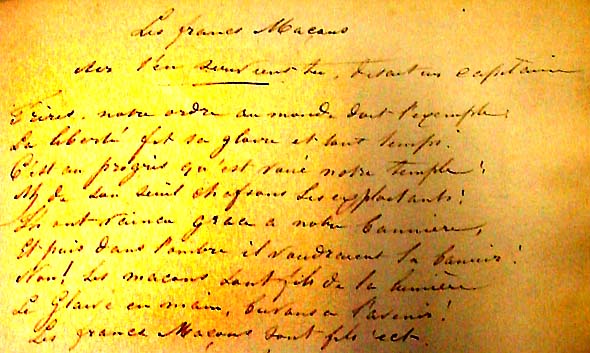 Les francs Maçons
Air T'en souviens tu, disait un capitaine
Frères, notre ordre au monde doit l'exemple;
La liberté fit sa gloire en tout temps.
C'est au progrès qu'est voué notre temple!
de son seuil chassons les exploitants!
Ils ont vaincu grace a notre bannière,
Et puis dans l'ombre il voudraient la bannir!
Non! Les maçons sont fils de la lumière
Le Glaive en main, buvons a l'avenir!
Les francs Maçons sont fils ect.